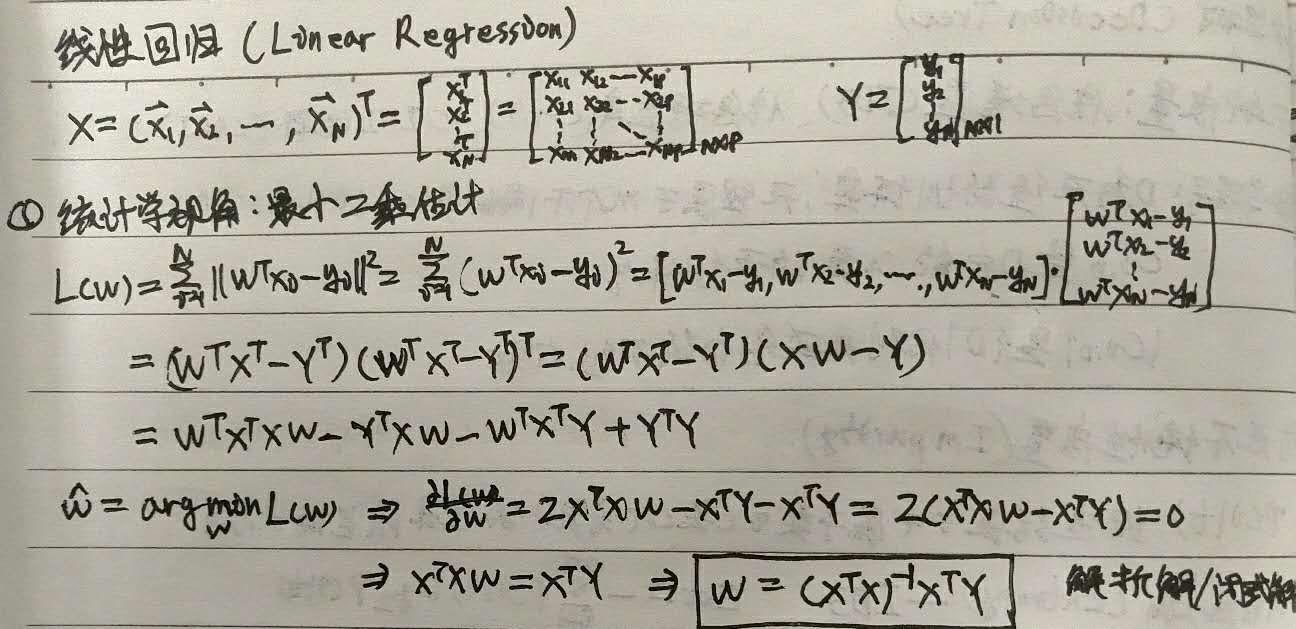 线性回归 (Linear Regression)
X = (x⃗₁, x⃗₂, ⋯, x⃗_N)ᵀ = [x₁ᵀ; x₂ᵀ; ⋮; x_Nᵀ] = [x₁₁ x₁₂ ⋯ x₁ₚ; x₂₁ x₂₂ ⋯ x₂ₚ; ⋮ ⋮ ⋱ ⋮; x_N1 x_N2 ⋯ x_Np]_N×P Y = [y₁; y₂; ⋮; y_N]_N×1
① 统计学视角: 最小二乘估计
L(w) = Σ_{i=1}^{N} ||wᵀxᵢ − yᵢ||² = Σ_{i=1}^{N} (wᵀxᵢ − yᵢ)² = [wᵀx₁ − y₁, wᵀx₂ − y₂, ⋯, wᵀx_N − y_N] · [wᵀx₁ − y₁; wᵀx₂ − y₂; ⋮; wᵀx_N − y_N]
= (WᵀXᵀ − Yᵀ)(WᵀXᵀ − Yᵀ)ᵀ = (WᵀXᵀ − Yᵀ)(XW − Y)
= WᵀXᵀXW − YᵀXW − WᵀXᵀY + YᵀY
ŵ = arg min_w L(w) ⇒ ∂L(w)/∂w = 2XᵀXW − XᵀY − XᵀY = 2(XᵀXW − XᵀY) = 0
⇒ XᵀXW = XᵀY ⇒ W = (XᵀX)⁻¹XᵀY 解析解/闭式解